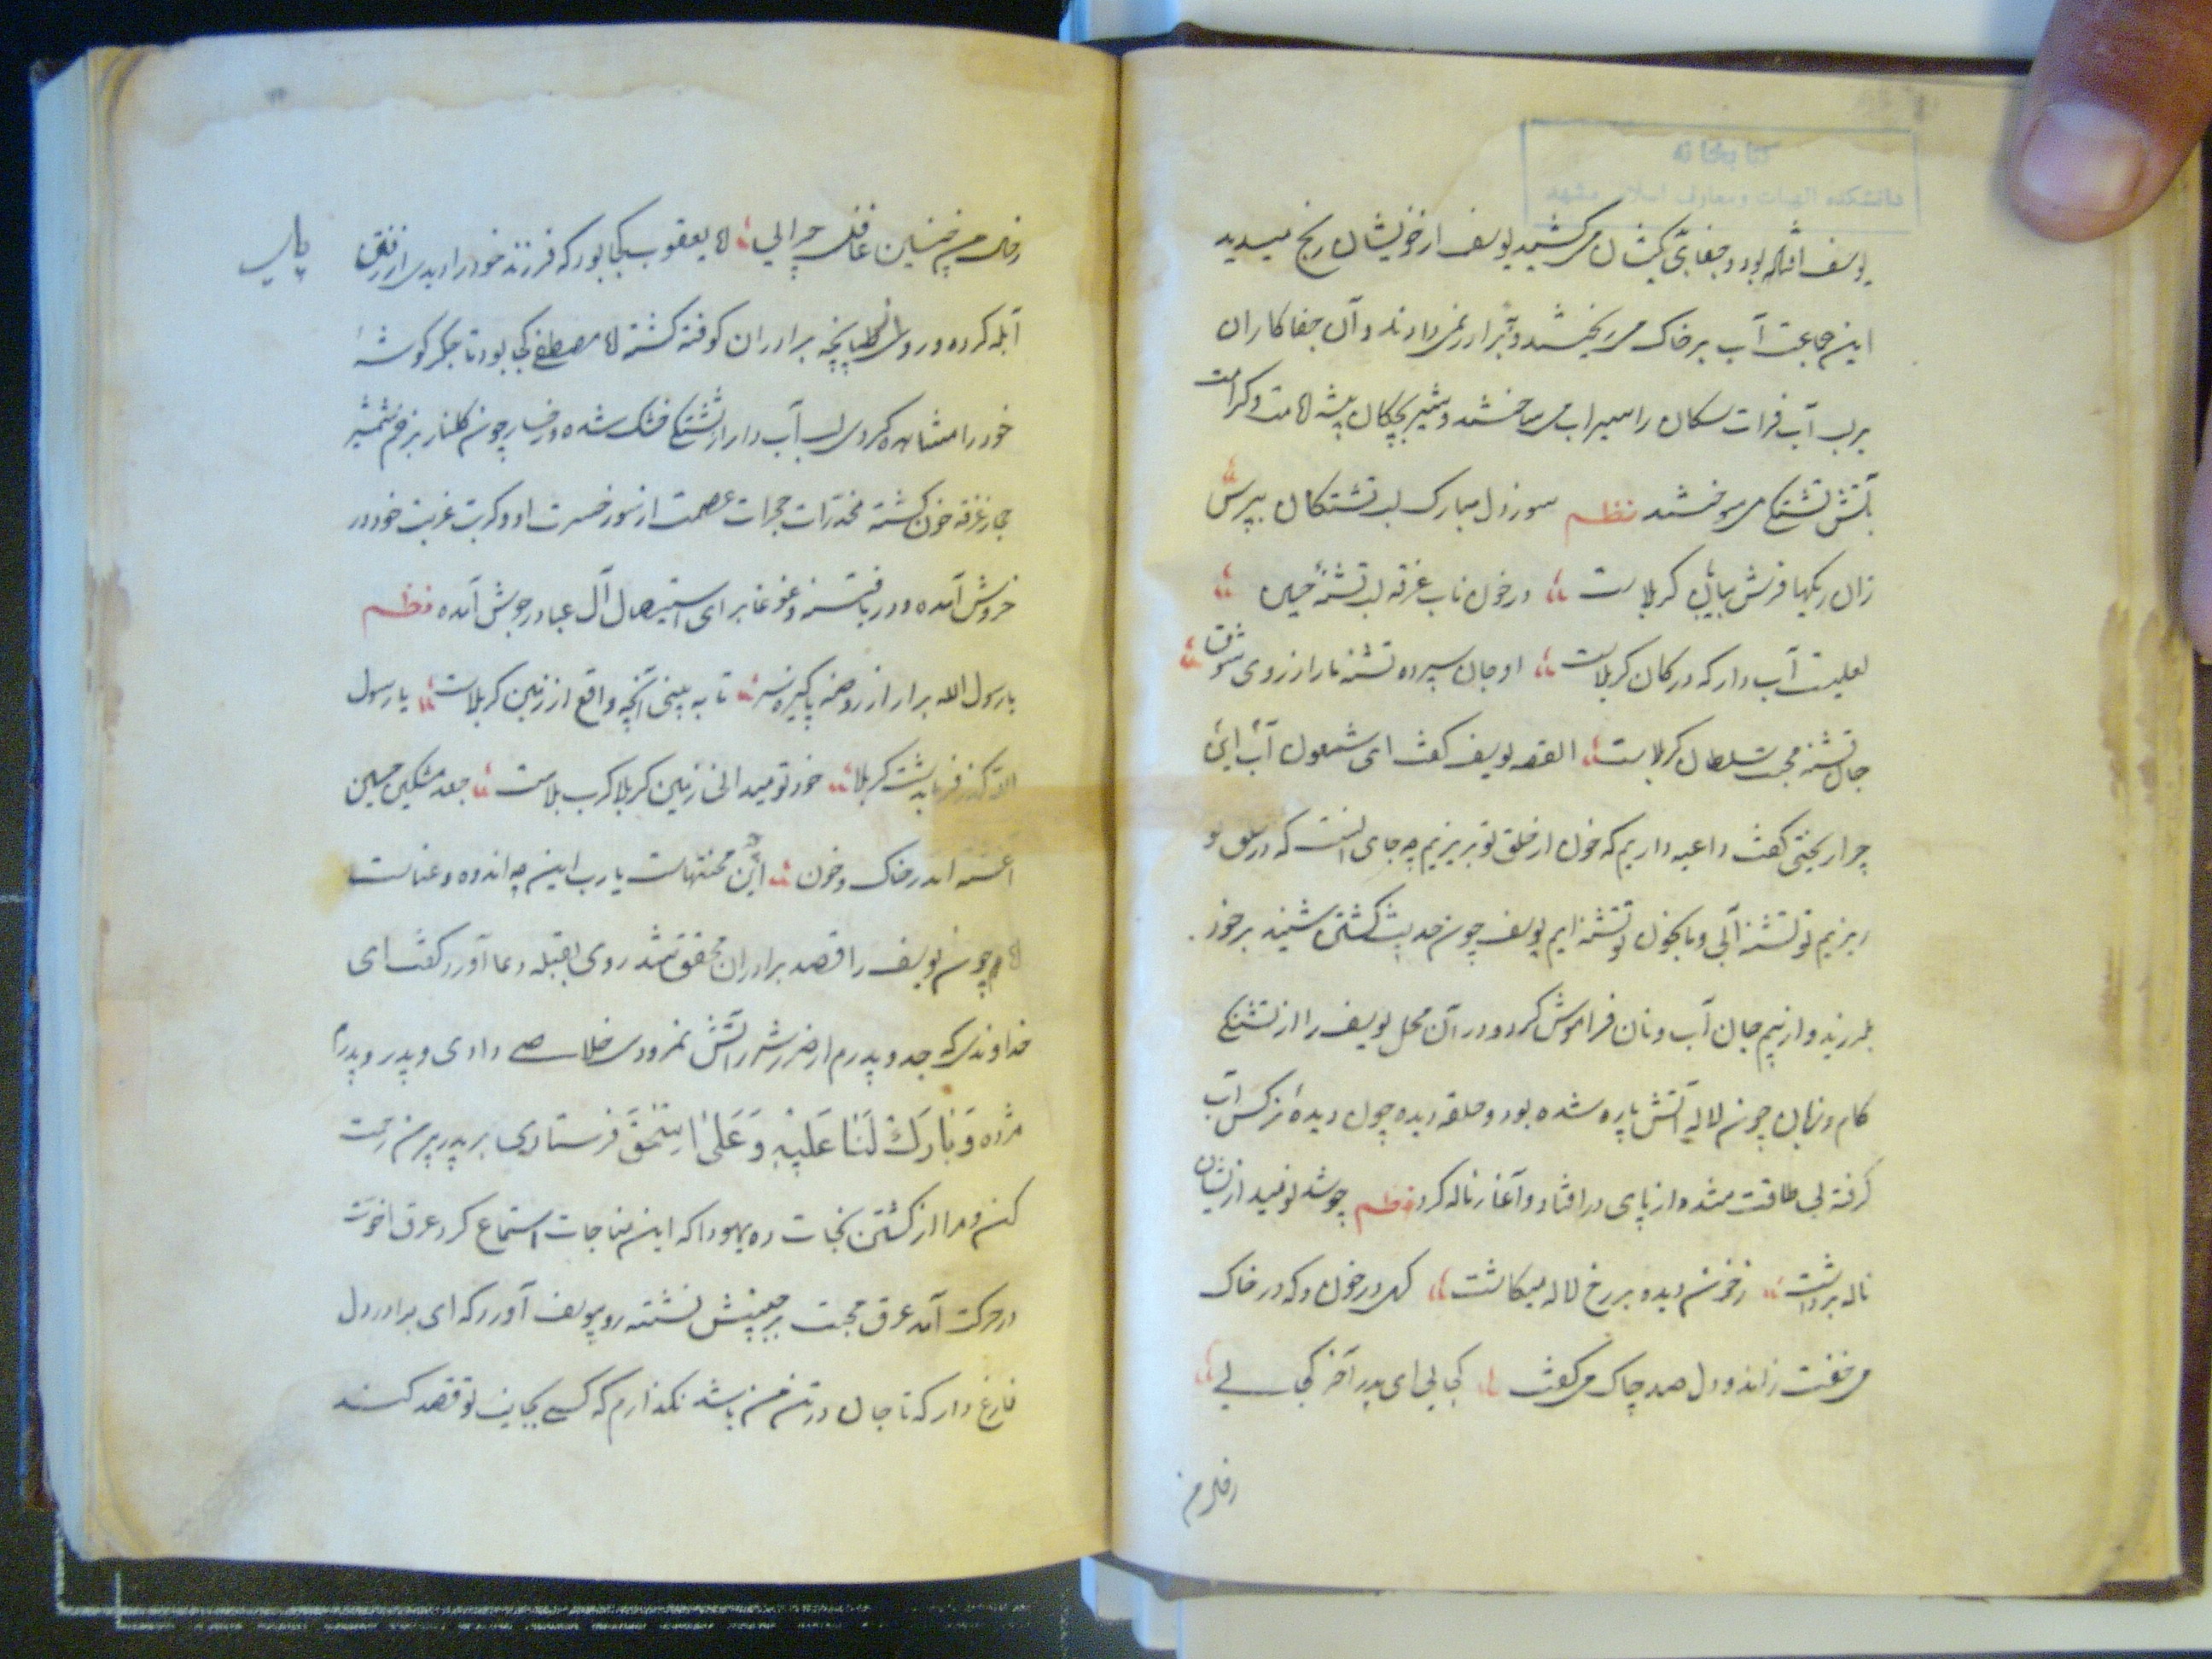 کتابخانه
دانشکده الهیات و معارف اسلامی مشهد
یوسف افتاده بود و جفای می‌کشید یوسف از خویشان رنج میدید
این جماعت آب بر خاک می‌ریختند و بآن برادر نمی‌دادند و آن جفاکاران
بر لب آب فرات سکان را سیراب می‌ساختند و شیر بچکان بیشه امامت و کرامت
بآتش تشنگی می‌سوختند نظم سوز دل مبارک لب تشنگان بپرس
زان ریکها که فرش بیابان کربلاست در خون ناب غرقه لب تشنهٔ حسین
لعلیست آب دار که در کان کربلاست او جان سپرده تشنه ما را ز روی شوق
جان تشنه محبت سلطان کربلاست القصه یوسف گفت ای شمعون آب
چرا ریختی گفت داعیه داریم که خون از حلق تو بریزیم چه جای آنست که در حلق تو
ریزیم تو تشنه آبی و ما بخون تو تشنه ایم یوسف چون حدیث کشتن شنید بر خود
بلرزید و از بیم جان آب و نان فراموش کرد و در آن محل یوسف را از تشنگی
کام و زبان چون لاله آتش پاره شده بود و حلقه دیده چون دیدهٔ نرکس آب
گرفته بی طاقت شده از پای در افتاد و آغاز ناله کرد نظم چو شد نومید از ایشان
ناله برداشت ز خون دیده بر رخ لاله میکاشت کهی در خون و که در خاک
می‌خفت ز اندوه دل صد چاک می‌گفت کجایی ای پدر آخر کجایی
ز حال من
ز حال من چنین غافل چرایی اما یعقوب کجا بود که فرزند خود را دیدی از رفتن پای
آبله کرده و روی از طپانچه برادران کوفته گشته اما مصطفی کجا بود تا جگرگوشهٔ
خود را مشاهده کردی لب آب دار از تشنگی خشک شده و رخسار چون کلنار بزخم شمشیر
غرقه خون گشته مخدرات حجرات عصمت از سوز حسرت او و کربت غربت خود در
خروش آمده و دریا فتنه و غوغا برای استیصال آل عبا در جوش آمده نظم
یا رسول الله برآر از روضه پاکیزه سر تا به بینی آنچه واقع از زمین کربلاست یا رسول
الله گذر فرما بدشت کربلا خود تو میدانی زمین کربلا کرب و بلاست جعد مشکین حسین
آغشته اندر خاک و خون این چه محنتهاست یا رب این چه اندوه و عناست
اما چون یوسف را قصد برادران محقق شد روی بقبله دعا آورد گفت ای
خداوندی که جد و پدرم از ضرر شرر آتش نمرودی خلاصی دادی و پدر و پدرم
مژده وَبَارَكْ لَنَا عَلَيْهِ وَعَلَىٰ إِسْحٰقَ فرستادی بر پدر پیر من رحمت
کن و مرا از کشتن نجات ده یهودا که این مناجات استماع کرد عرق اخوت
در حرکت آمد عرق محبت بر جبینش نشسته رو بیوسف آورد که ای برادر دل
فارغ دار که تا جان در تن من باشد نگذارم که کسی بجانب تو قصد کند